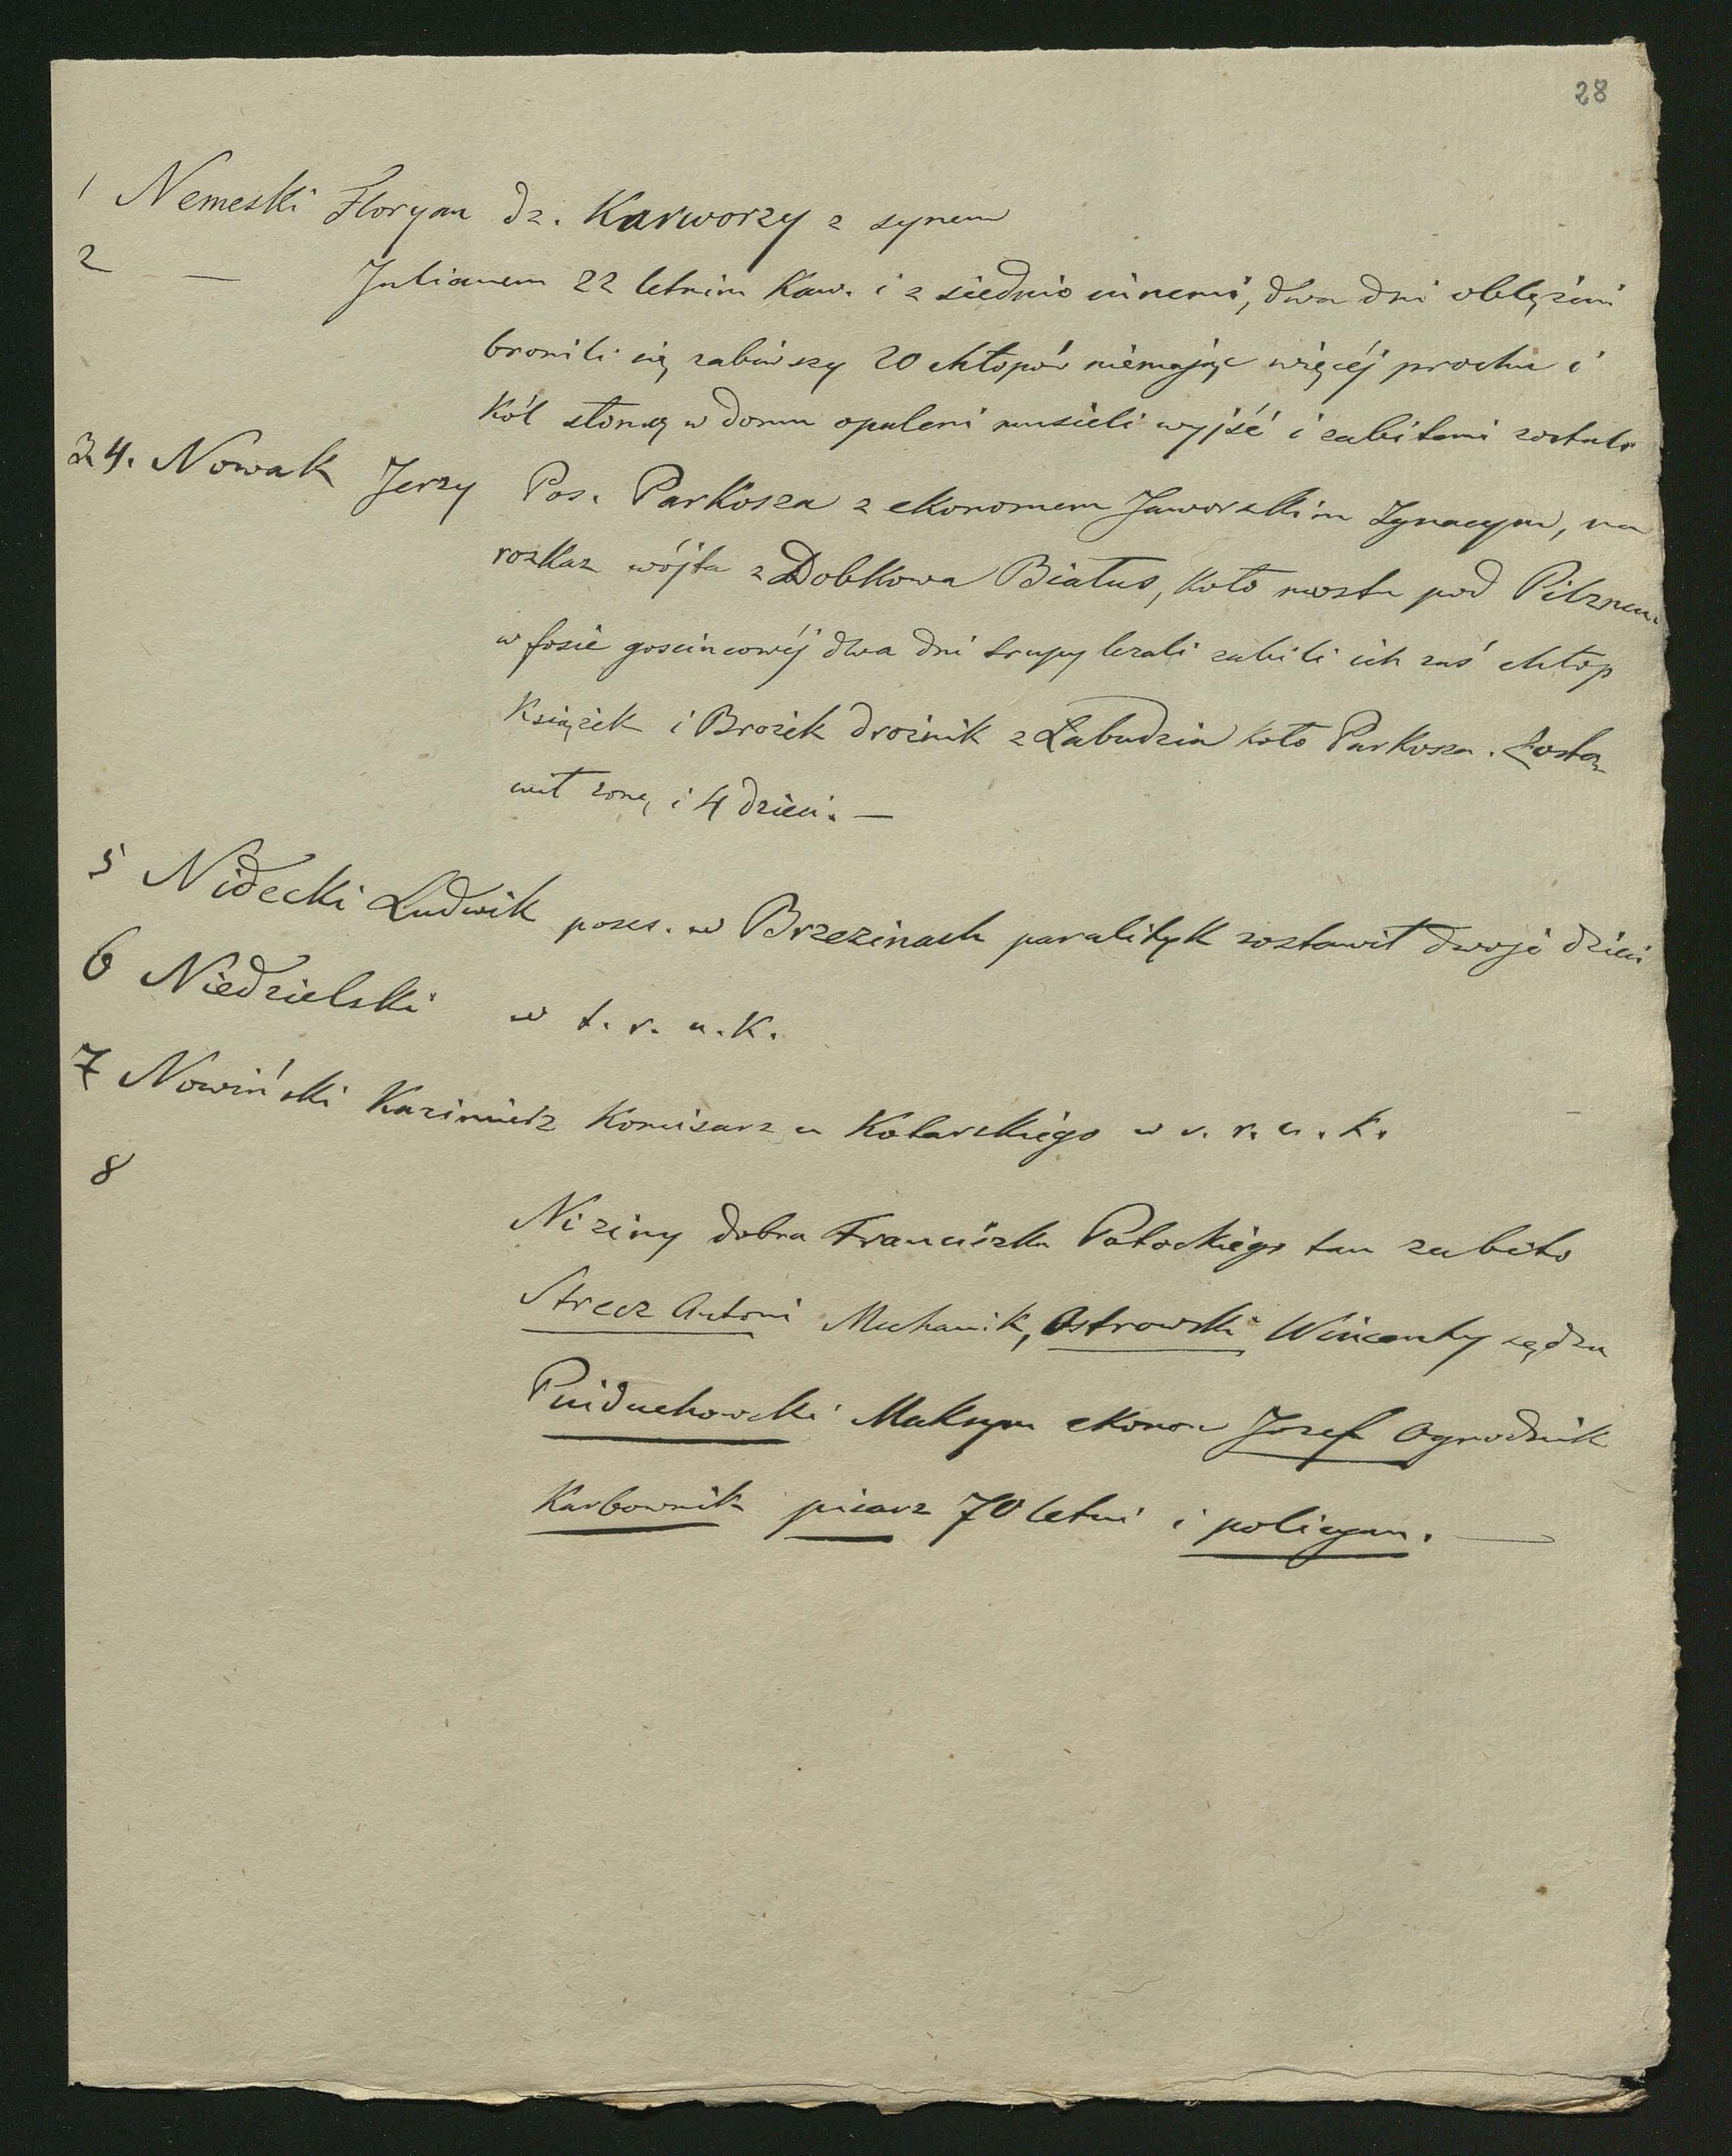 28
1 Nemeski Floryan dz. Karworzy z synem
2 — Julianem 22 letnim Kaw. i z siedmio innemi, dwa dni oblężeni
bronili się zabiwszy 20 chłopów niemając więcéj prochu i
Kól słomą w domu opaleni musieli wyjść i zabitemi zostali
3. 4. Nowak Jerzy Pos. Parkosza z ekonomem Jaworskim Ignacym, na
rozkaz wójta z Dobkowa Białus, koło mostu pod Pilznem
w fosie goscincowéj dwa dni trupy lezali zabili ich zaś chłop
Książek i Brożek drożnik z Łabudzia koło Parkosza. Zosta-
wił zonę i 4 dzieci. —
5 Nidecki Ludwik poses. w Brzezinach paralityk zostawił dwoje dzieci
6 Niedzielski w t. r. u. K.
7 Nowiński Kazimierz Komisarz u Kotarskiego w r. r. u. k.
8
Niziny dobra Franciszka Potockiego tam zabito
Strecz Antoni Mechanik, Ostrowski Wincenty sędzia
Maksym ekonom Jozef Ogrodnik
Karbownik pisarz 70 letni i policyan. —